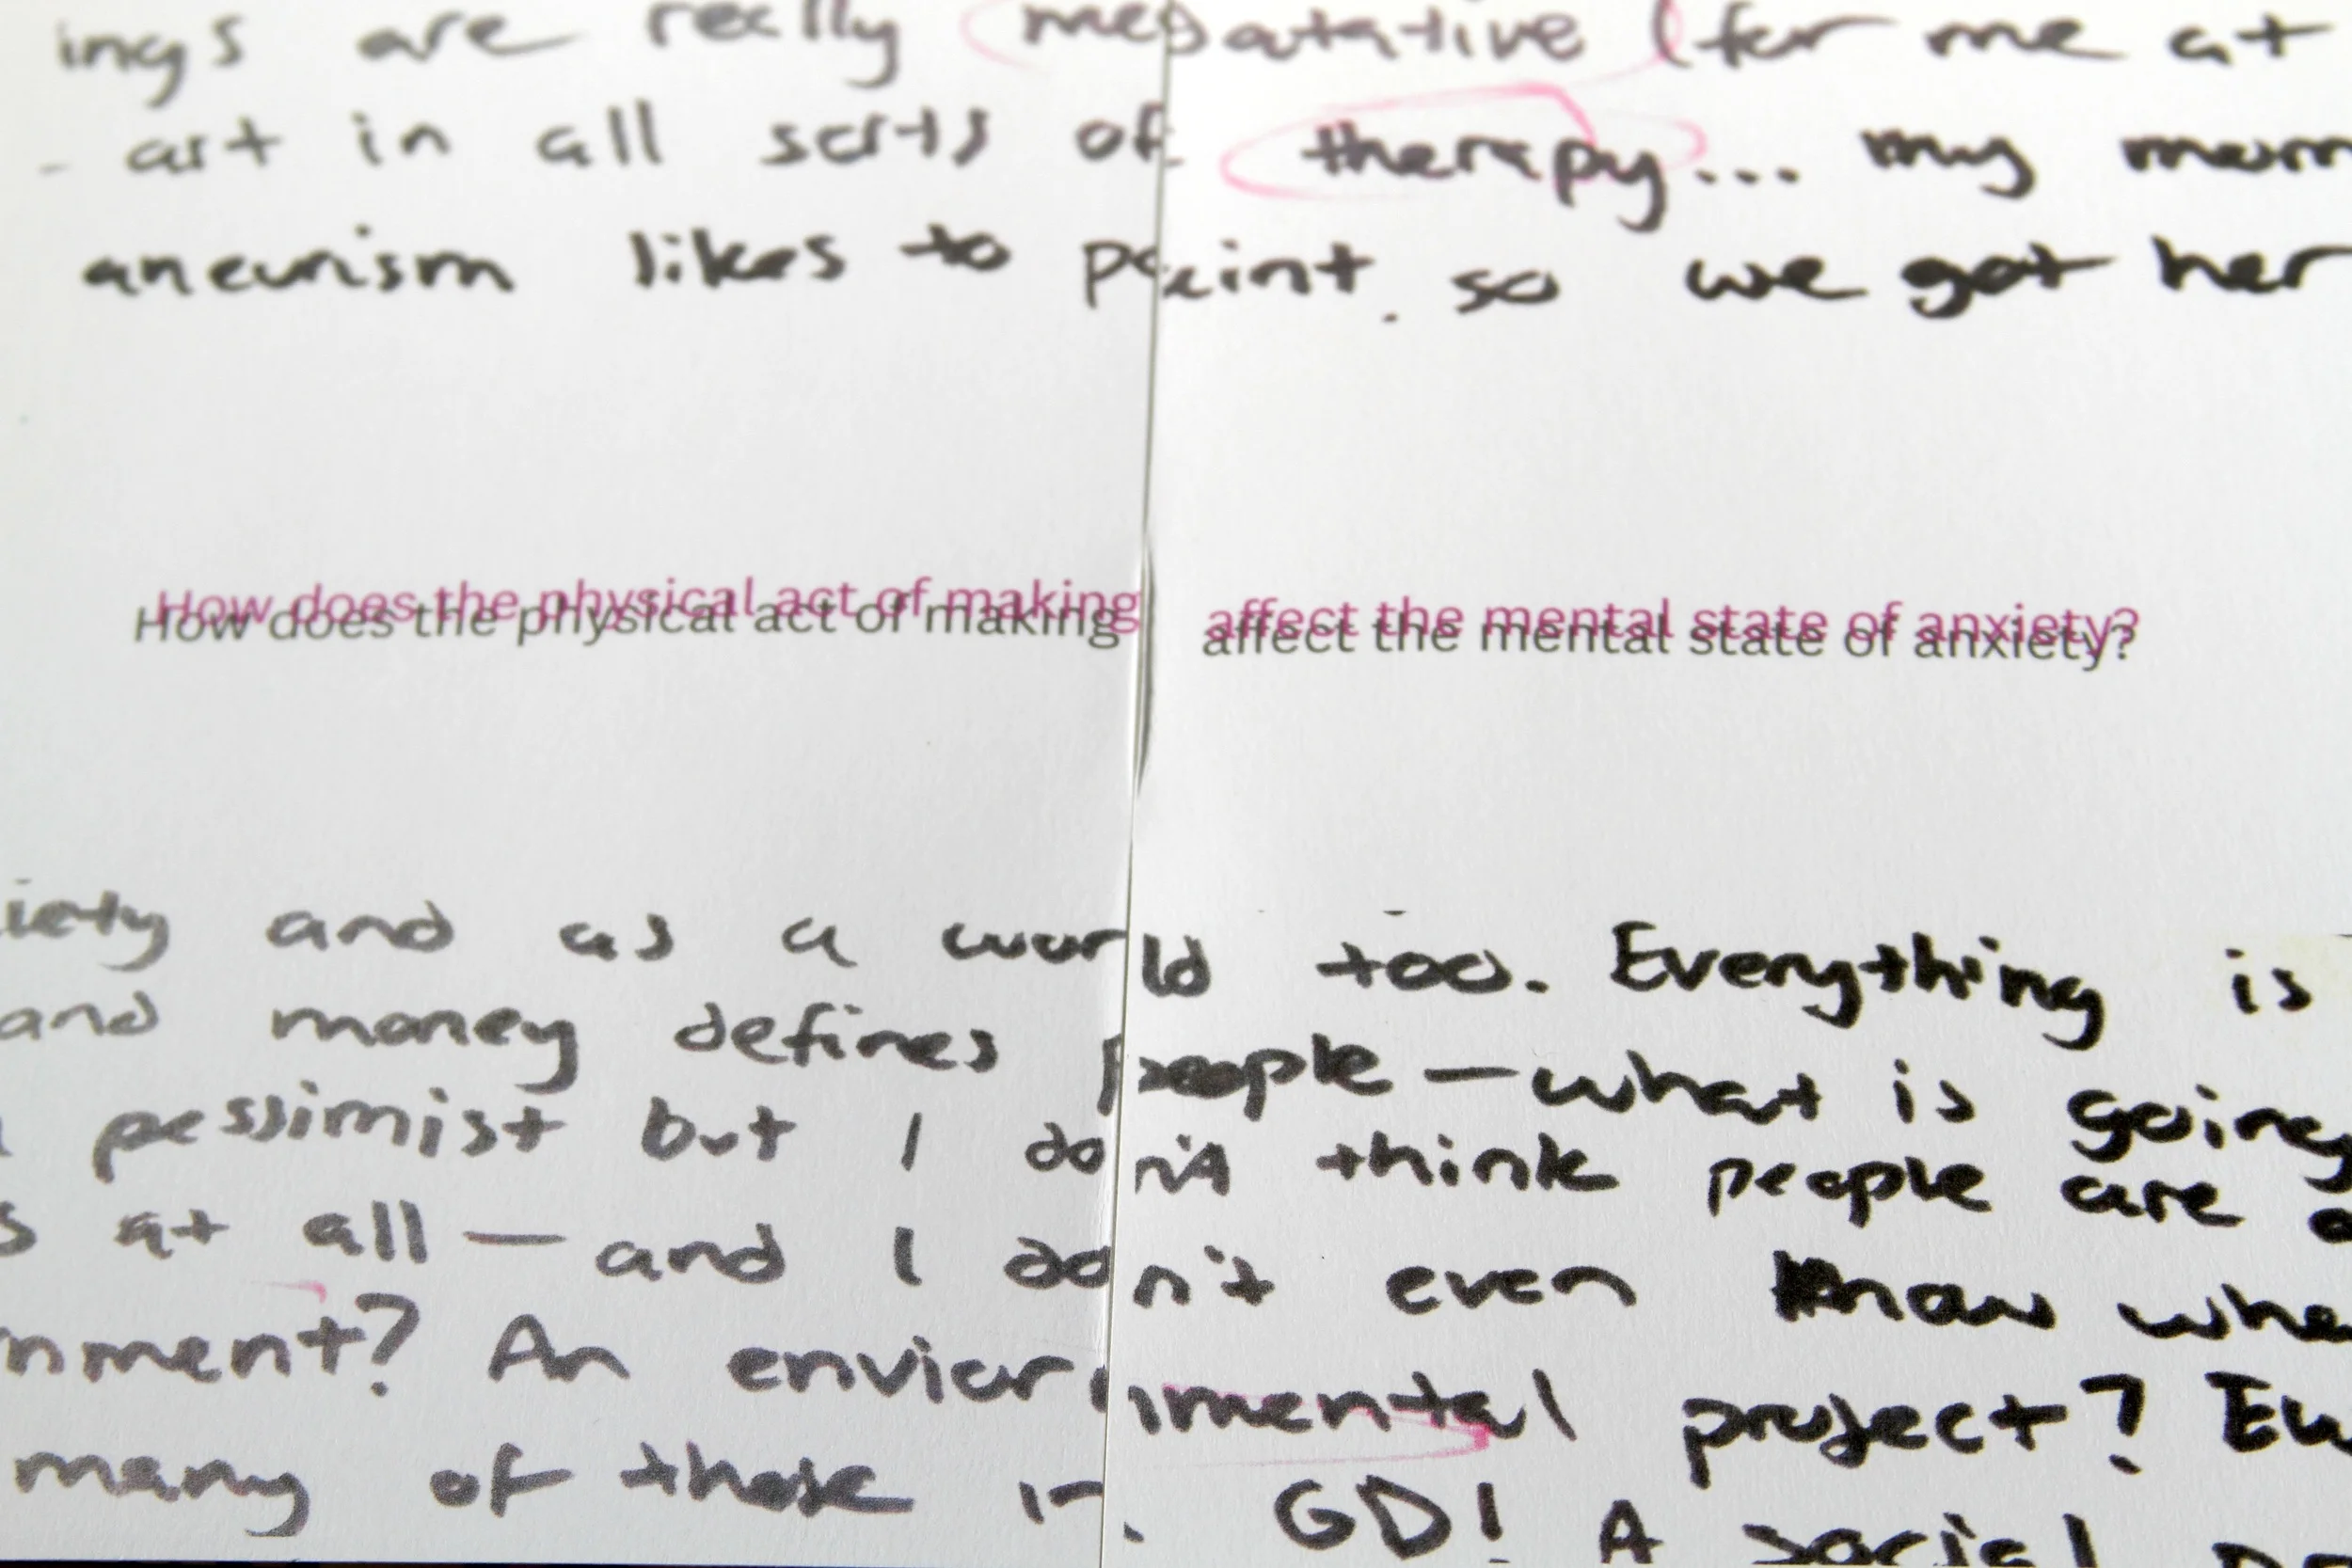 ings are really medatative (for me at
- art in all sorts of therapy... my mom
aneurism likes to paint. so we got her
How does the physical act of making affect the mental state of anxiety?
How does the physical act of making affect the mental state of anxiety?
iety and as a world too. Everything is
and money defines people — what is going
pessimist but I don't think people are
s at all — and I don't even know whe
nment? An enviornmental project? Eu
many of those in GD! A social